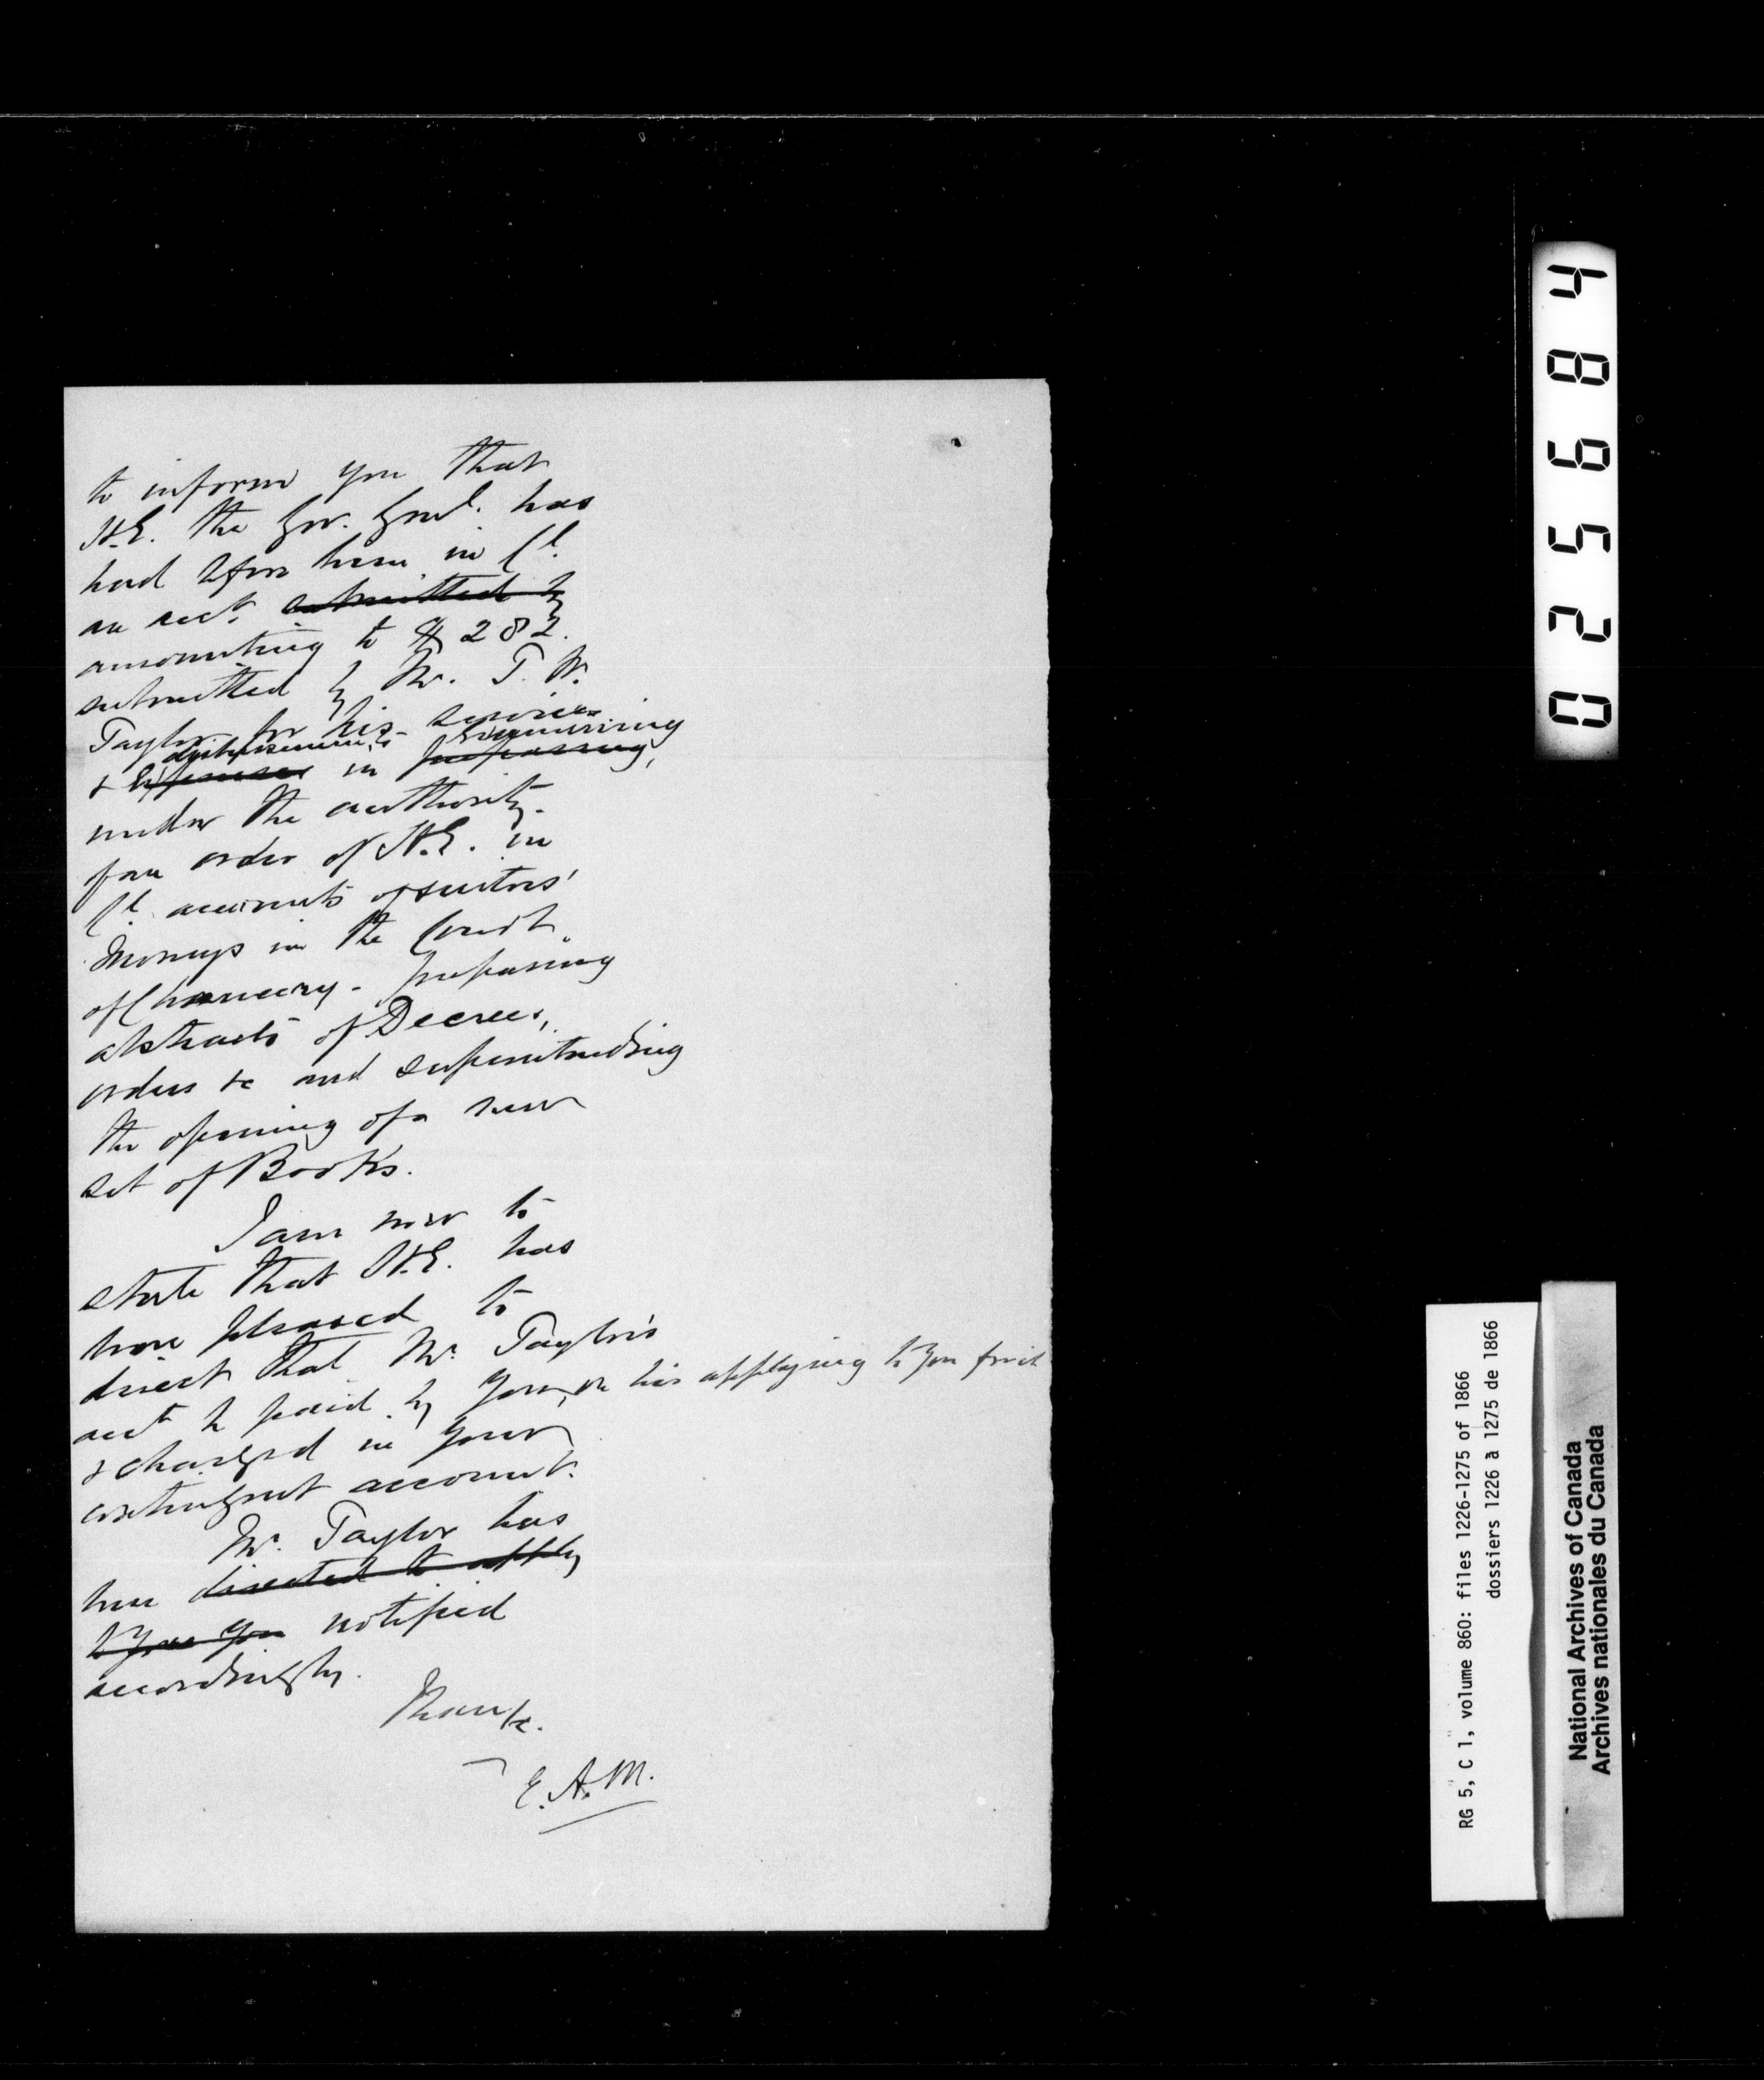 to inform you that
H.E. the Gov. Genl. has
had before him in Cl.
an acct. submitted by
amounting to $282.
submitted by Mr. T. W.
Taylor for his services
disbursements examining
& Expenses in preparing,
under the authority
of an order of H.E. in
Cl. accounts of suitors'
Moneys in the Court
of Chancery - preparing
abstracts of Decrees,
orders &c and superintending
the opening of a new
set of Books.
I am now to
state that H.E. has
been pleased to
direct that Mr. Taylor's
acct be paid by you, on his applying to you for it
& charged in your
contingent account.
Mr. Taylor has
been directed to apply
to you you notified
accordingly.
I have &c.
E.A.M.
025684
RG 5, C 1, volume 860: files 1226-1275 of 1866
dossiers 1226 à 1275 de 1866
National Archives of Canada
Archives nationales du Canada